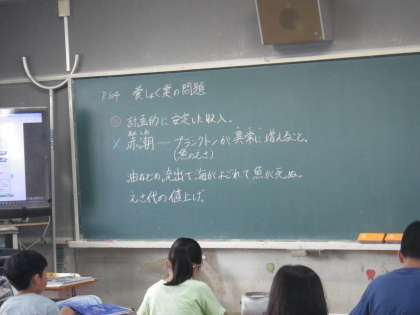 P.104 養しょく業の問題
◎ 計画的に安定した収入。
× 赤潮 ― プランクトンが異常に増えること。
あかしお
(魚のえさ)
油などの流出で海がよごれて魚が死ぬ。
えさ代の値上げ